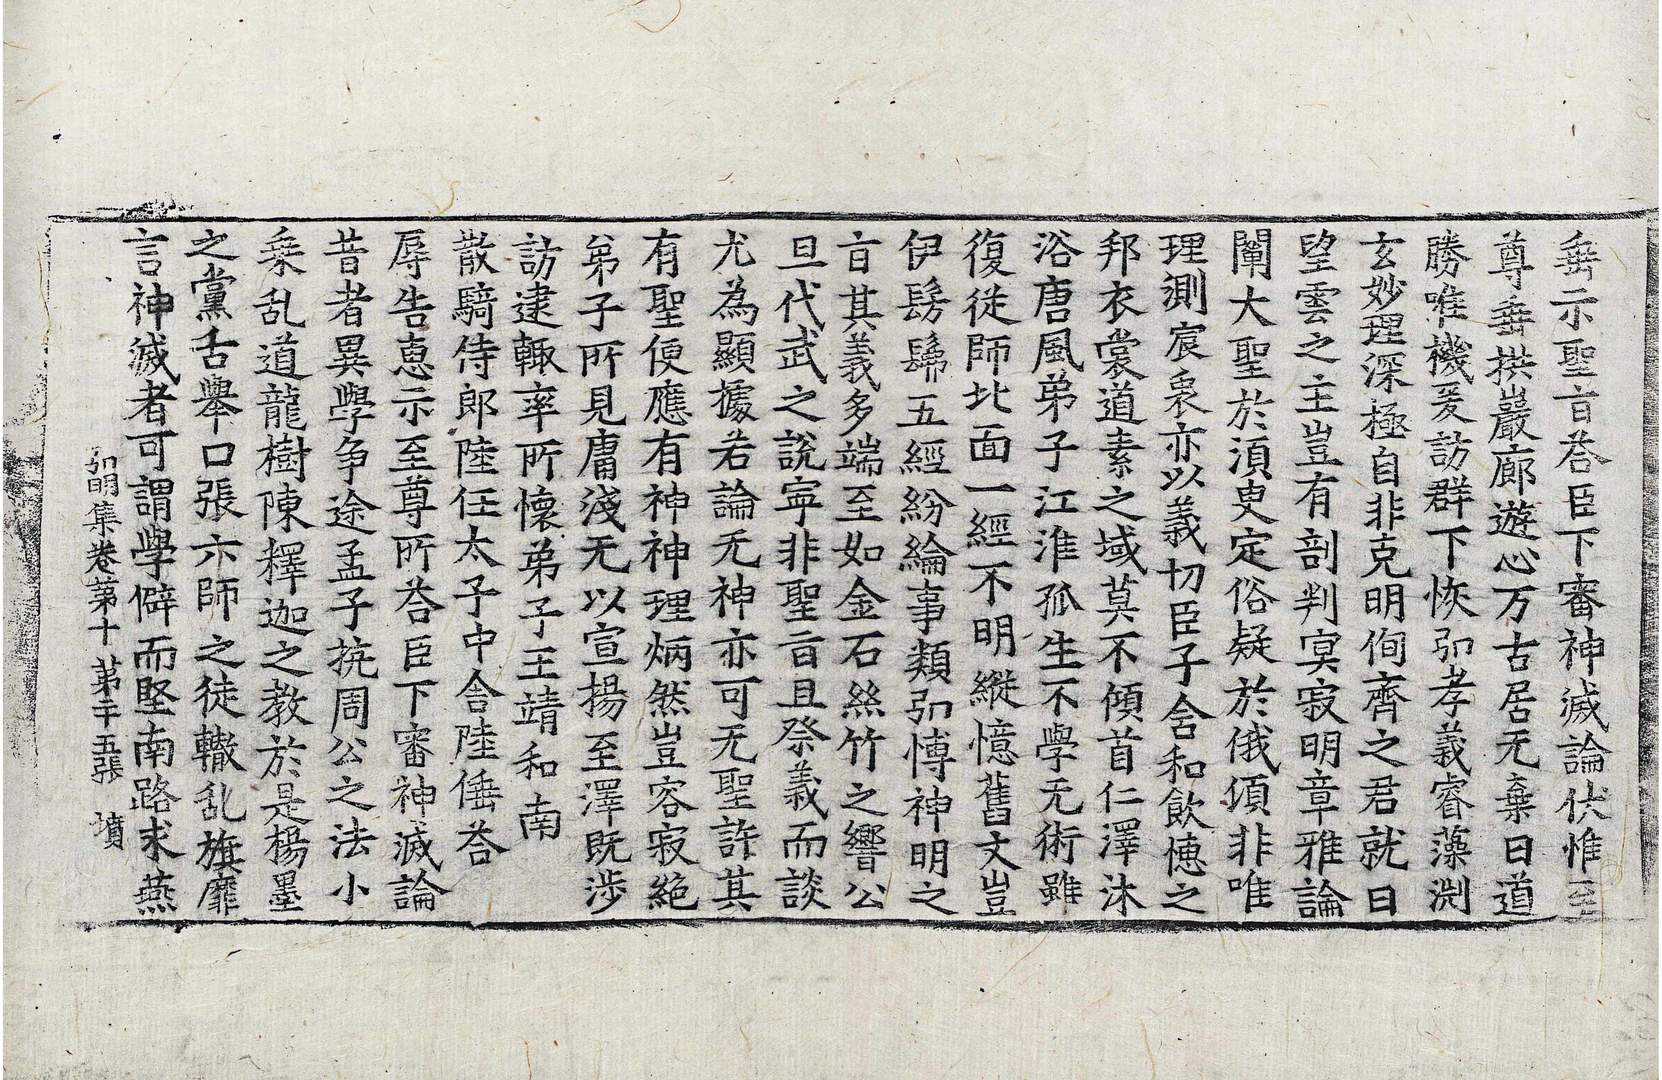 垂示聖旨荅臣下審神滅論伏惟至
尊垂拱巖廊遊心万古居无棄日道
勝唯機爰訪群下恢弘孝義睿藻渕
玄妙理深極自非克明徇齊之君就日
望雲之主豈有剖判㝠寂明章雅論
闡大聖於湏臾定俗疑於俄頃非唯
理測宸衷亦以義切臣子含和飲德之
邦衣裳道素之域莫不傾首仁澤沐
浴唐風弟子江淮孤生不學无術雖
復從師北面一經不明縱憶舊文豈
伊髣髴五經紛綸事類弘博神明之
旨其義多端至如金石絲竹之響公
旦代武之說寜非聖旨且祭義而談
尤為顯據若論无神亦可无聖許其
有聖便應有神神理炳然豈容寂絶
弟子所見庸淺无以宣揚至澤既涉
訪逮輙率所懷弟子王靖和南
散騎侍郎陸任太子中舍陸倕荅
辱告惠示至尊所荅臣下審神滅論
昔者異學争途孟子抗周公之法小
乗乱道龍樹陳釋迦之教於是楊墨
之黨舌舉口張六師之徒轍乱旗靡
言神滅者可謂學僻而堅南路求燕
弘明集卷第十 第二十五張 墳